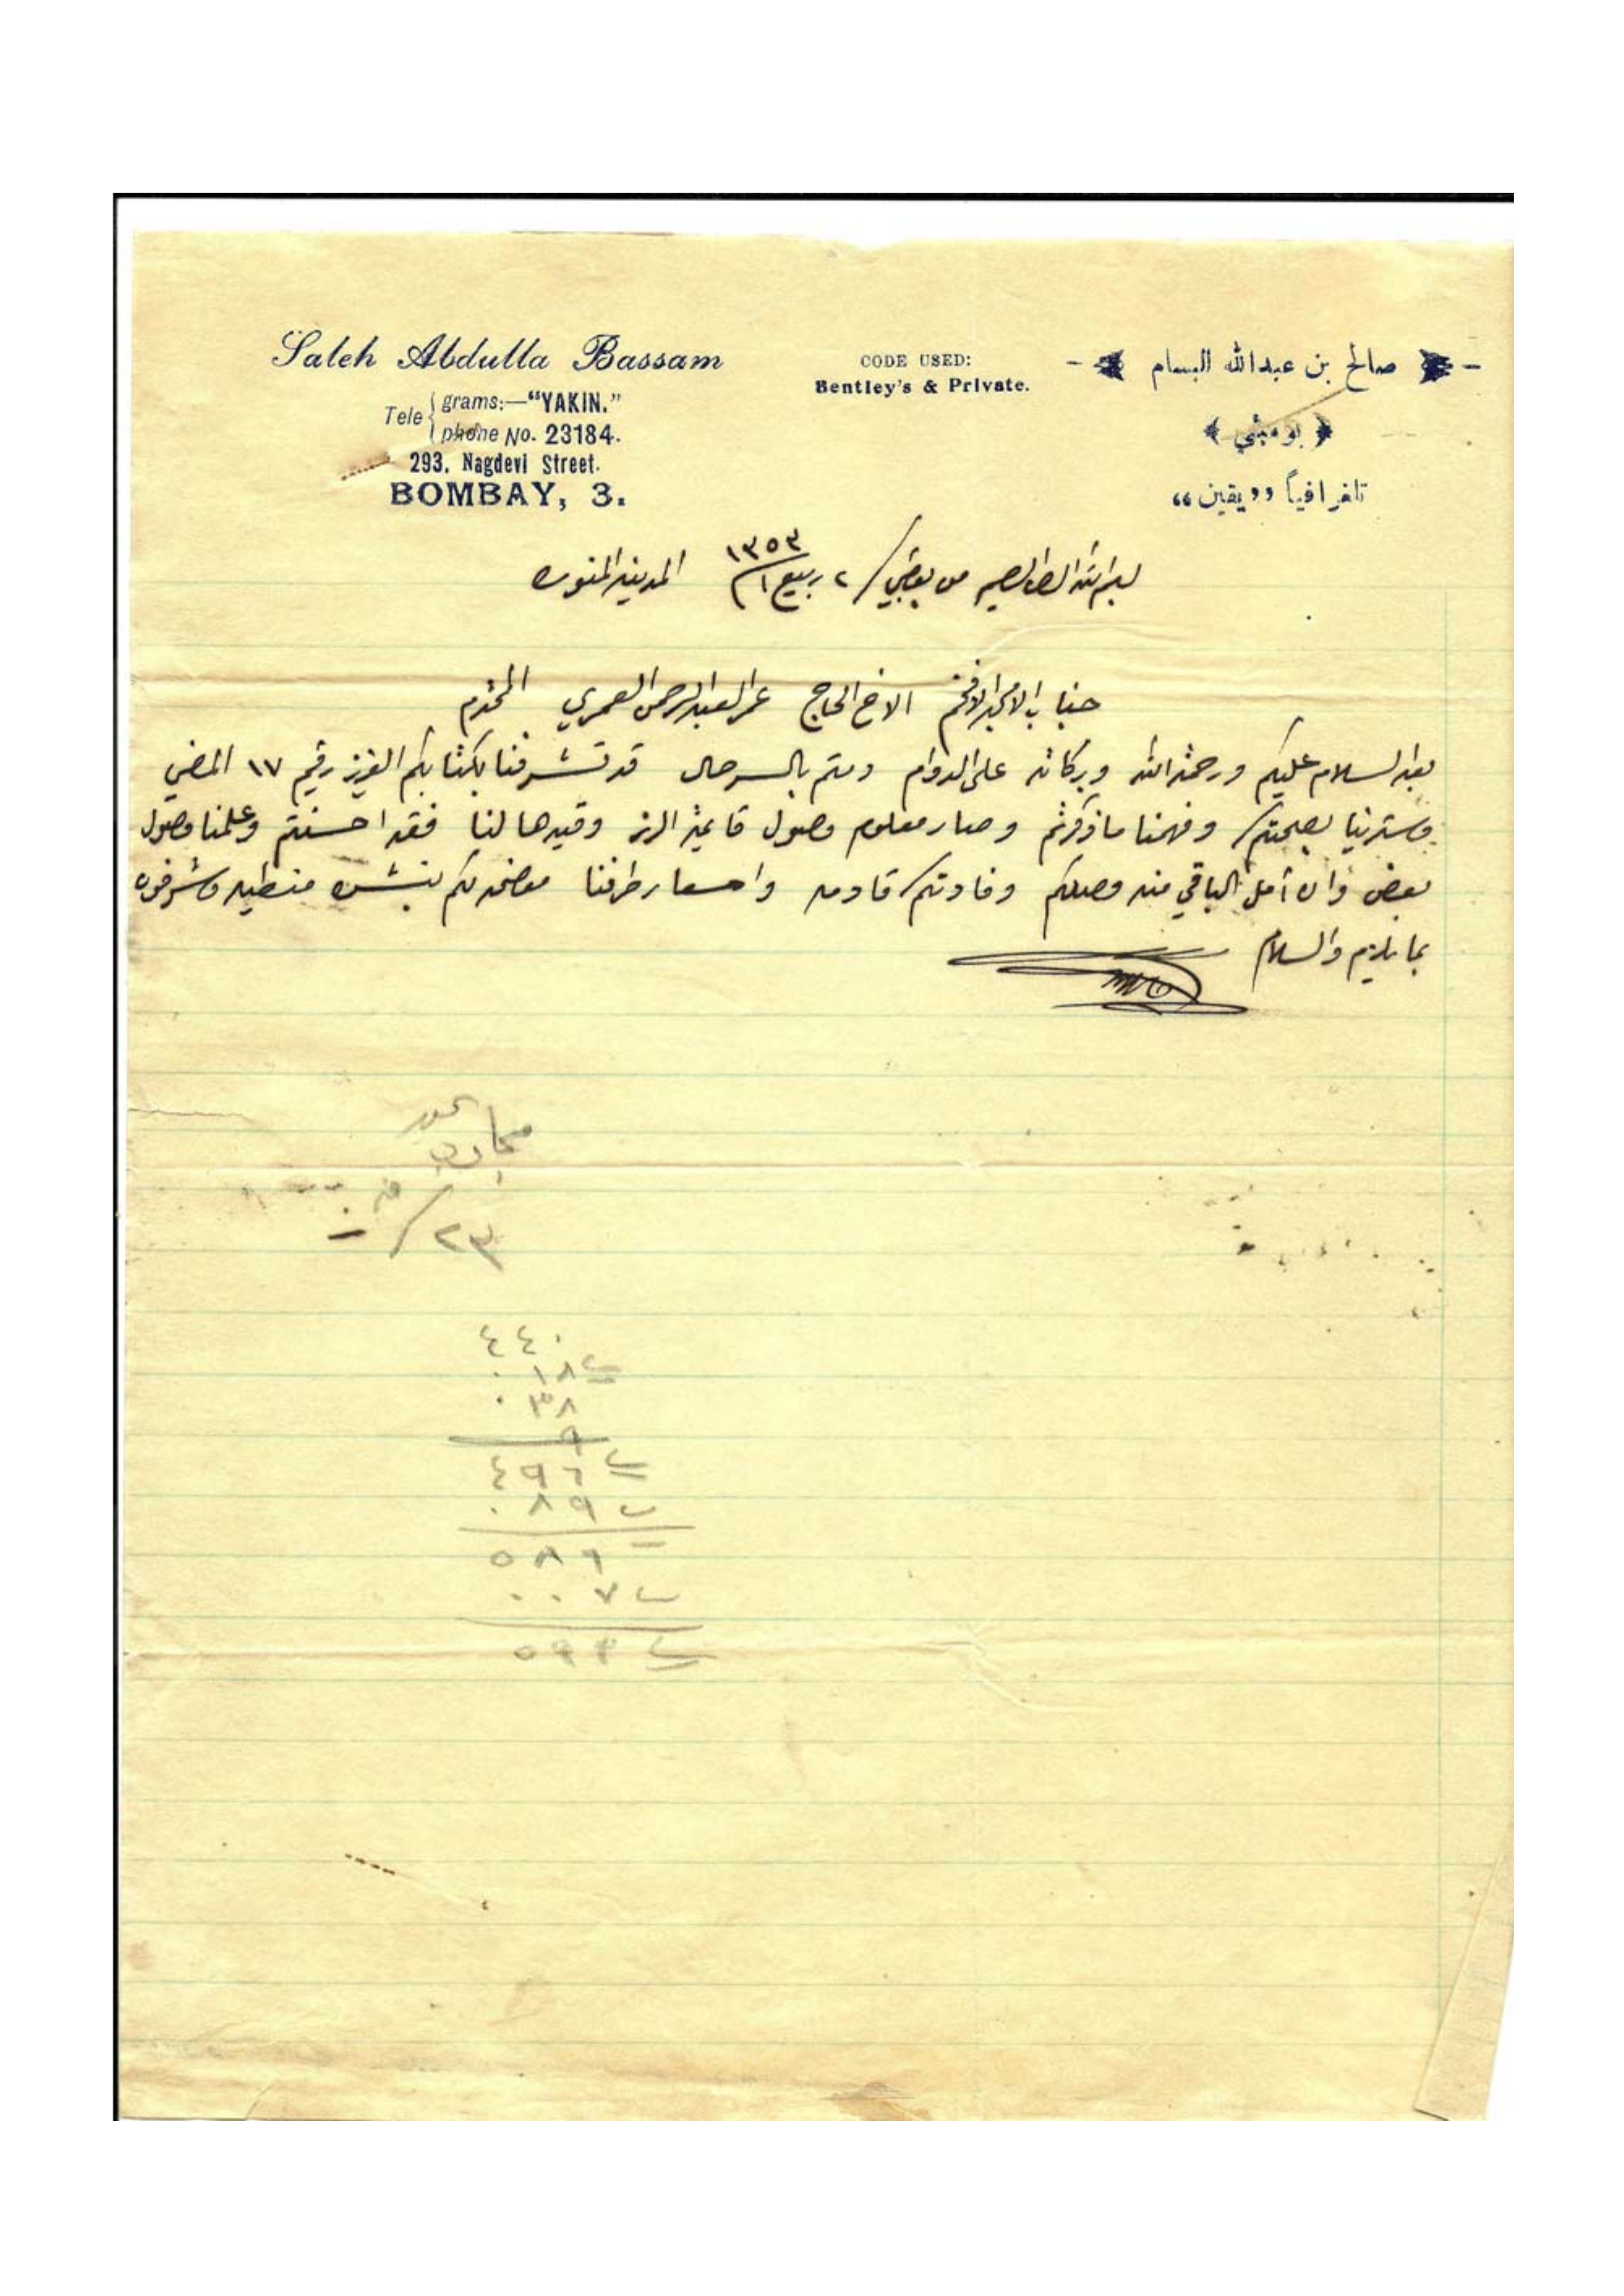 Saleh Abdulla Bassam
Tele grams:—"YAKIN."
phone No. 23184.
293, Nagdevi Street.
BOMBAY, 3.
CODE USED:
Bentley's & Private.
صالح بن عبدالله البسام
بومبئي
تلغرافياً ”يقين“
بسم الله الرحمن الرحيم من بومبي / ٢ ربيع ١ / ١٣٥٣ المدينه المنوره
جناب الامجد الافخم الاخ الحاج عمر العبدالرحمن العمري المحترم
بعد السلام عليكم ورحمة الله وبركاته على الدوام دمتم بالسرحال قد تشرفنا بكتابكم العزيز رقيم ١٧ الماضي
وسترينا بصحتكم وفهمنا ما ذكرتم وصار معلوم وصول قايمة الرز وقيدها لنا فقد احسنتم وعلمنا وصول
بعض وان أمل الباقي منه وصلكم وفادتكم قادمه واسعار طرفنا موضحه لكم
بما يلزم والسلام
٢٣ /
٤٤٠
٠١٨
٠٣٨
٩
٤٩٦
٠٨٩
٥٨٦
٠٠٧